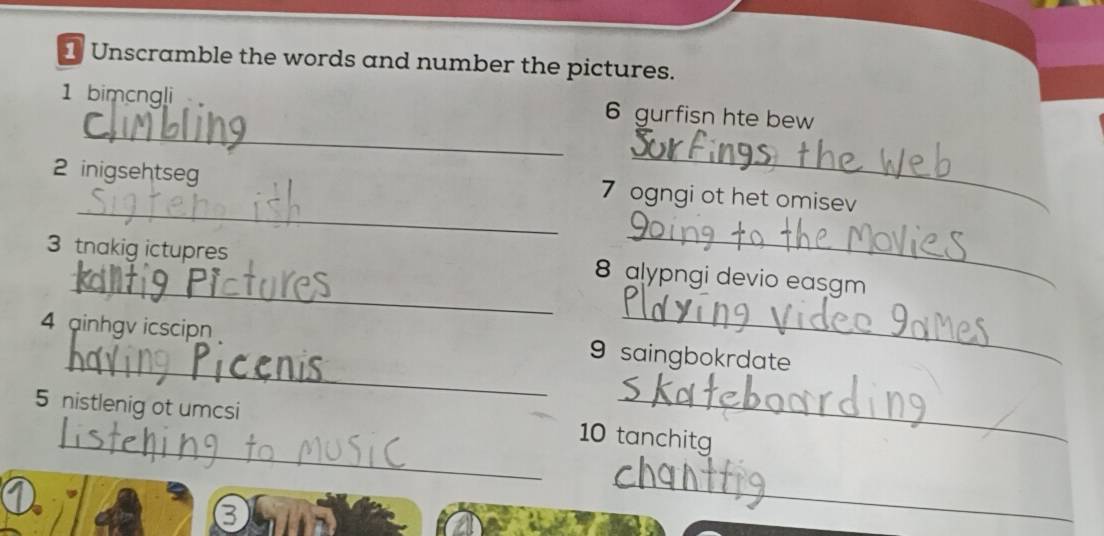 1 Unscramble the words and number the pictures.
1 bimcngli
climbling
2 inigsehtseg
3 tnakig ictupres
kantig Pictures
4 ginhgv icscipn
having Picenis
5 nistlenig ot umcsi
Listening to music
6 gurfisn hte bew
Surfings the Web
7 ogngi ot het omisev
going to the Movies
8 alypngi devio easgm
Playing video games
9 saingbokrdate
skateboarding
10 tanchitg
chanttig
1
3